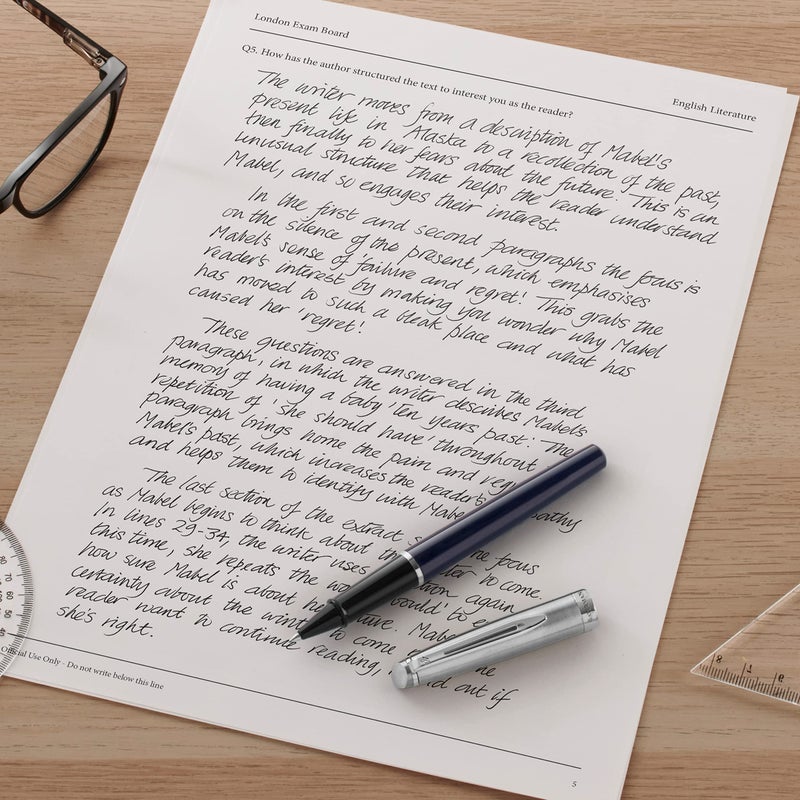 London Exam Board
English Literature
Q5. How has the author structured the text to interest you as the reader?
The writer moves from a description of Mabel's
present life in Alaska to a recollection of the past,
then finally to her fears about the future. This is an
unusual structure that helps the reader understand
Mabel, and so engages their interest.
In the first and second paragraphs the focus is
on the silence of the present, which emphasises
Mabel's sense of 'failure and regret'. This grabs the
reader's interest by making you wonder why Mabel
has moved to such a bleak place and what has
caused her 'regret'.
These questions are answered in the third
paragraph, in which the writer describes Mabel's
memory of having a baby 'ten years past'. The
repetition of 'she should have' throughout
paragraph brings home the pain and
Mabel's past, which increases the reader's
and helps them to identify with
The last section of the extract focus
as Mabel begins to think about to come.
In lines 29-34, the writer uses again
this time, she repeats the would' to
how sure Mabel is about
certainty about the to come
reader want to continue reading, out if
she's right.
Official Use Only - Do not write below this line
5
8
9
80
70
60
50
40